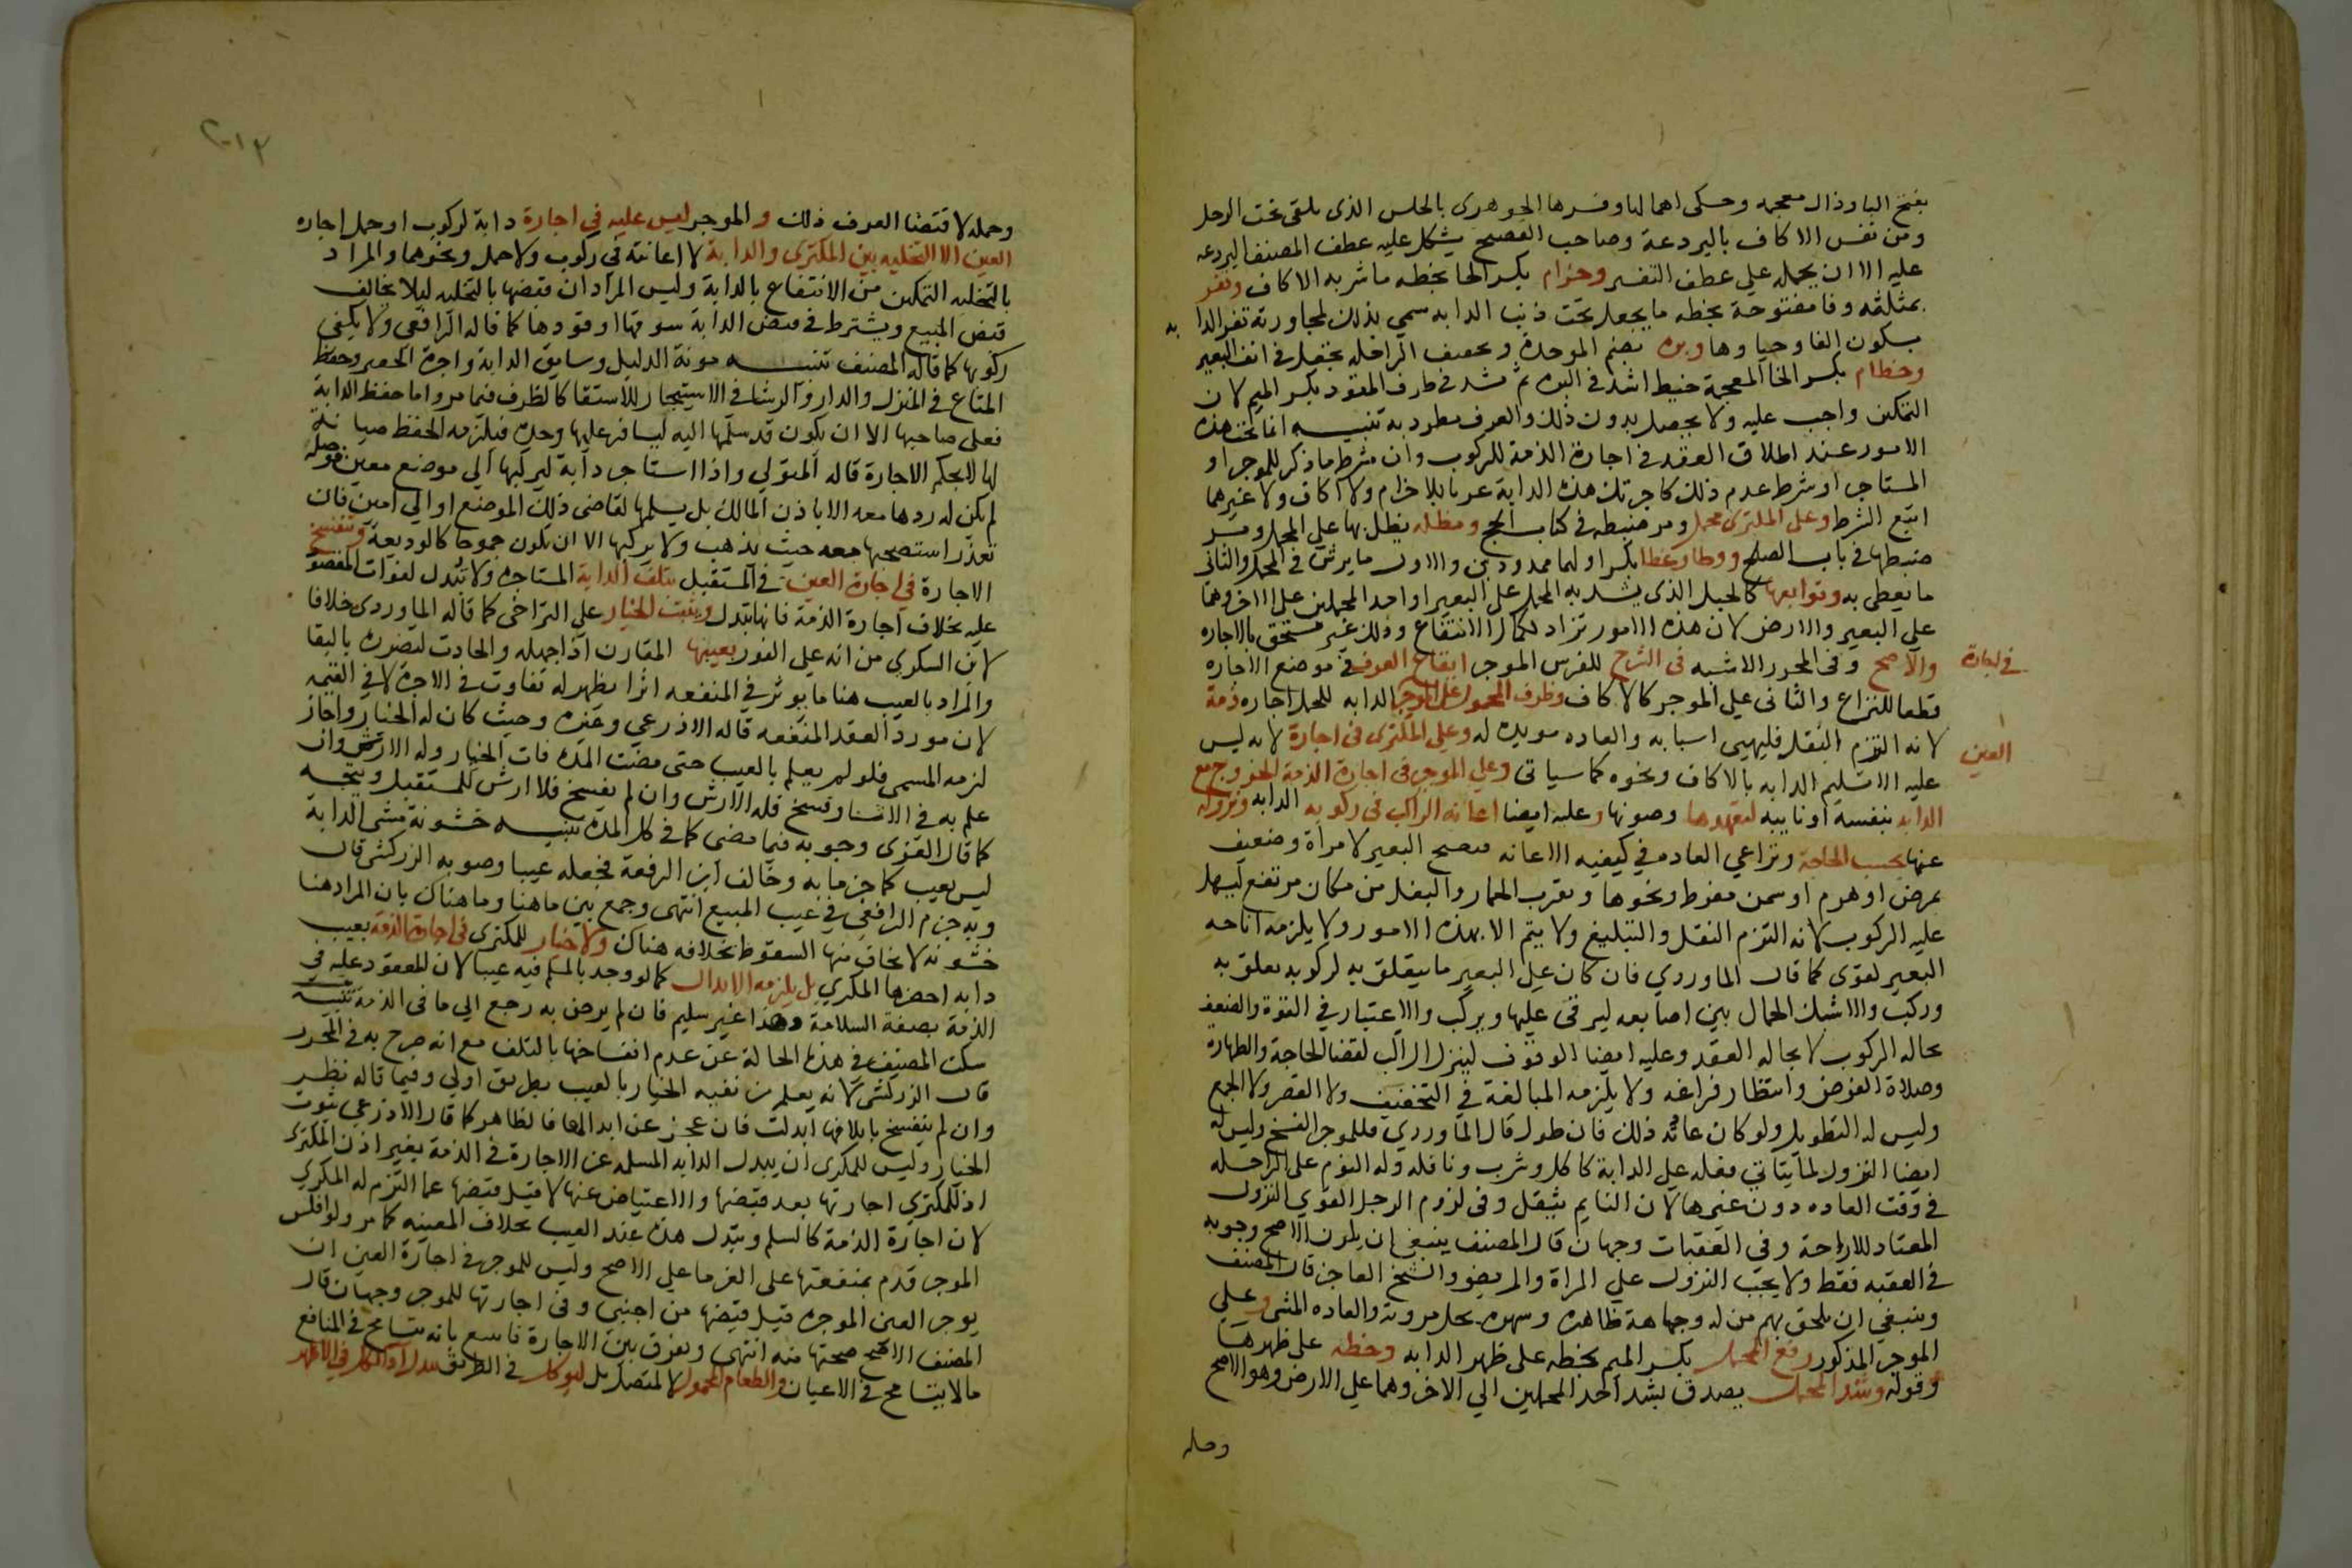 بفتح البا وذال معجمه وحكى اهمالها وفسرها الجوهرى بالحلس الذى يلقى تحت الرحل
ومن نفس الاكاف بالبردعة وصاحب الفصيح يشكل عليه عطف المصنف البردعه
عليه الا ان يحمل على عطف التفسير وحزام بكسر الحا بخطه ما شد به الاكاف وثفر
بمثلثه وفا مفتوحة بخطه ما يجعل تحت ذنب الدابه سمي بذلك لمجاورته ثفر الدابه
بسكون الفا وحياوها وبره بضم الموحدة وتخفيف الرا حلقه تجعل في انف البعير
وخطام بكسر الخا المعجمة خيط اشد في البره ثم يشد في طرف المقود بكسر الميم لان
التمكين واجب عليه ولا يحصل بدون ذلك والعرف مطرد به تنبيه انما تجب هذه
الامور عند اطلاق العقد في اجارة الذمة للركوب وان شرط ما ذكر للموجر او
المستاجر او شرط عدم ذلك كاجرتك هذه الدابة عريا بلا حزام ولا اكاف ولا غيرهما
اتبع الشرط وعلى المكترى محمل ومر ضبطه في كتاب الحج ومظله يظلل بها على المحمل ومر
ضبطها في باب الصلح ووطا وغطا بكسر اولهما ممدودين والاول ما يفرش في المحمل والثانى
ما يغطى به وتوابعها كالحبل الذى يشد به المحمل على البعير او احد المحملين على الاخر وهما
على البعير والارض لان هذه الامور تراد لكمال الانتفاع وذلك غير مستحق بالاجاره
والاصح وفى المحرر الاشبه فى السرج للفرس الموجر اتباع العرف فى موضع الاجاره
فى اجارة
قطعا للنزاع والثانى على الموجر كالاكاف وظرف المحمول على الموجر الدابه للحمل اجاره ذمة
لانه التزم النقل فليهيى اسبابه والعاده مويده له وعلى المكترى فى اجارة لانه ليس
العين
عليه الا تسليم الدابه بالاكاف ونحوه كما سياتى وعلى الموجر فى اجارة الذمة الخروج مع
الدابه بنفسه او نايبه لتعهدها وصونها وعليه ايضا اعانه الراكب فى ركوبه الدابه ونزوله
عنها بحسب الحاجة وتراعي العاده في كيفيه الاعانه فينيخ البعير لامراة وضعيف
بمرض او هرم او سمن مفرط ونحوها ويقرب الحمار والبغل من مكان مرتفع ليسهل
عليه الركوب لانه التزم النقل والتبليغ ولا يتم الا بهذه الامور ولا يلزمه اناخه
البعير لقوى كما قال الماوردي فان كان على البعير ما يتعلق به لركوبه تعلق به
وركب والا شبك الجمال بين اصابعه ليرقى عليها ويركب والاعتبار في القوة والضعف
بحاله الركوب لا بحاله العقد وعليه ايضا الوقوف لينزل الراكب لقضا الحاجة والطهارة
وصلاة الفرض وانتظار فراغه ولا يلزمه المبالغة في التخفيف ولا القصر ولا الجمع
وليس له التطويل ولو كان عادته ذلك فان طول قال الماوردي فللموجر الفسخ وليس له
ايضا النزول لما يتاتي فعله على الدابة كاكل وشرب ونافله وله النوم على الراحله
في وقت العاده دون غيرها لان النايم يثقل وفى لزوم الرجل القوي النزول
المعتاد للاراحة وفى العقبات وجهان قال المصنف ينبغى ان يكون الاصح وجوبه
في العقبه فقط ولا يجب النزول على المراة والمريض والشيخ العاجز قال المصنف
وينبغي ان يلحق بهم من له وجاهة ظاهره وشهره يخل مروته والعاده المشى وعلي
الموجر المذكور رفع المحمل بكسر الميم بخطه على ظهر الدابه وحطه على ظهرها
وقوله وشد المحمل يصدق بشد احد المحملين الى الاخر وهما على الارض وهو الاصح
وحله
٢٠١٣
وحمله لاقتضا العرف ذلك والموجر ليس عليه في اجارة دابة لركوب او حمل اجاره
العين الا التخليه بين المكترى والدابة لا اعانته في ركوب ولا حمل ونحوهما والمراد
بالتخليه التمكين من الانتفاع بالدابة وليس المراد ان قبضها بالتخليه ليلا يخالف
قبض المبيع ويشترط في قبض الدابة سوقها او قودها كما قاله الرافعى ولا يكفى
ركوبها كما قاله المصنف تنبيه مونة الدليل وسايق الدابة واجرة الخفير وحفظ
المتاع في المنزل والدلو والرشا في الاستيجار للاستقا كالظرف فيما مر واما حفظ الدابة
فعلى صاحبها الا ان يكون قد سلمها اليه ليسافر عليها وحده فيلزمه الحفظ صيانة
لها لا بحكم الاجارة قاله المتولي واذا استاجر دابة ليركبها الى موضع معين فوصله
لم يكن له ردها معه الا باذن المالك بل يسلمها لقاضى ذلك الموضع او الي امين فان
تعذر استصحبها معه حيث يذهب ولا يركبها الا ان يكون جموحا كالوديعة وتنفسخ
الاجارة في اجارة العين في المستقبل بتلف الدابة المستاجره ولا تبدل لفوات المعقود
عليه بخلاف اجارة الذمة فانها تبدل ويثبت الخيار على التراخى كما قاله الماوردى خلافا
لابن السكري من انه على الفور بعيبها المقارن اذا جهله والحادث لتضرره بالبقا
والمراد بالعيب هنا ما يوثر في المنفعه اثرا يظهر له تفاوت في الاجرة لا في القيمه
لان مورد العقد المنفعه قاله الاذرعي وغيره وحيث كان له الخيار واجاز
لزمه المسمى فلو لم يعلم بالعيب حتى مضت المده فات الخيار وله الارش وان
علم به في الاثنا وفسخ فله الارش وان لم يفسخ فلا ارش للمستقبل ويتجه
كما قال الغزى وجوبه فيما مضى كما في كل المدة تنبيه خشونة مشى الدابة
ليس بعيب كما جزما به وخالف ابن الرفعة فجعله عيبا وصوبه الزركشى قال
وبه جزم الرافعى في عيب المبيع انتهى وجمع بين ما هنا وما هناك بان المراد هنا
خشونه لا يخاف منها السقوط بخلافه هناك ولا خيار للمكترى في اجارة الذمه بعيب
دابه احضرها المكري بل يلزمه الابدال كما لو وجد بالمسلم فيه عيبا لان المعقود عليه في
الذمة بصفة السلامة وهذا غير سليم فان لم يرض به رجع الى ما فى الذمة تنبيه
سكت المصنف في هذه الحالة عن عدم انفساخها بالتلف مع انه صرح به في المحرر
قال الزركشى لانه يعلم من نفيه الخيار بالعيب بطريق اولى وفيما قاله نظر
وان لم ينفسخ باتلافها ابدلت فان عجز عن ابدالها فالظاهر كما قال الاذرعي ثبوت
الخيار وليس للمكرى ان يبدل الدابه المسلمه عن الاجارة في الذمة بغير اذن المكترى
اذ للمكتري اجارتها بعد قبضها والاعتياض عنها لا قبل قبضها عما التزم له المكري
لان اجارة الذمة كالسلم وتبدل هذه عند العيب بخلاف المعينه كما مر ولو افلس
الموجر قدم بمنفعتها على الغرما على الاصح وليس للموجر في اجارة العين ان
يوجر العين الموجره قبل قبضها من اجنبى وفى اجارتها للموجر وجهان قال
المصنف الاصح صحتها منه انتهى ويفرق بين الاجارة والبيع بانه يتسامح في المنافع
ما لا يتسامح في الاعيان والطعام المحمول لا لمتصل بل ليوكل في الطريق يبدل اذا اكل في الاظهر